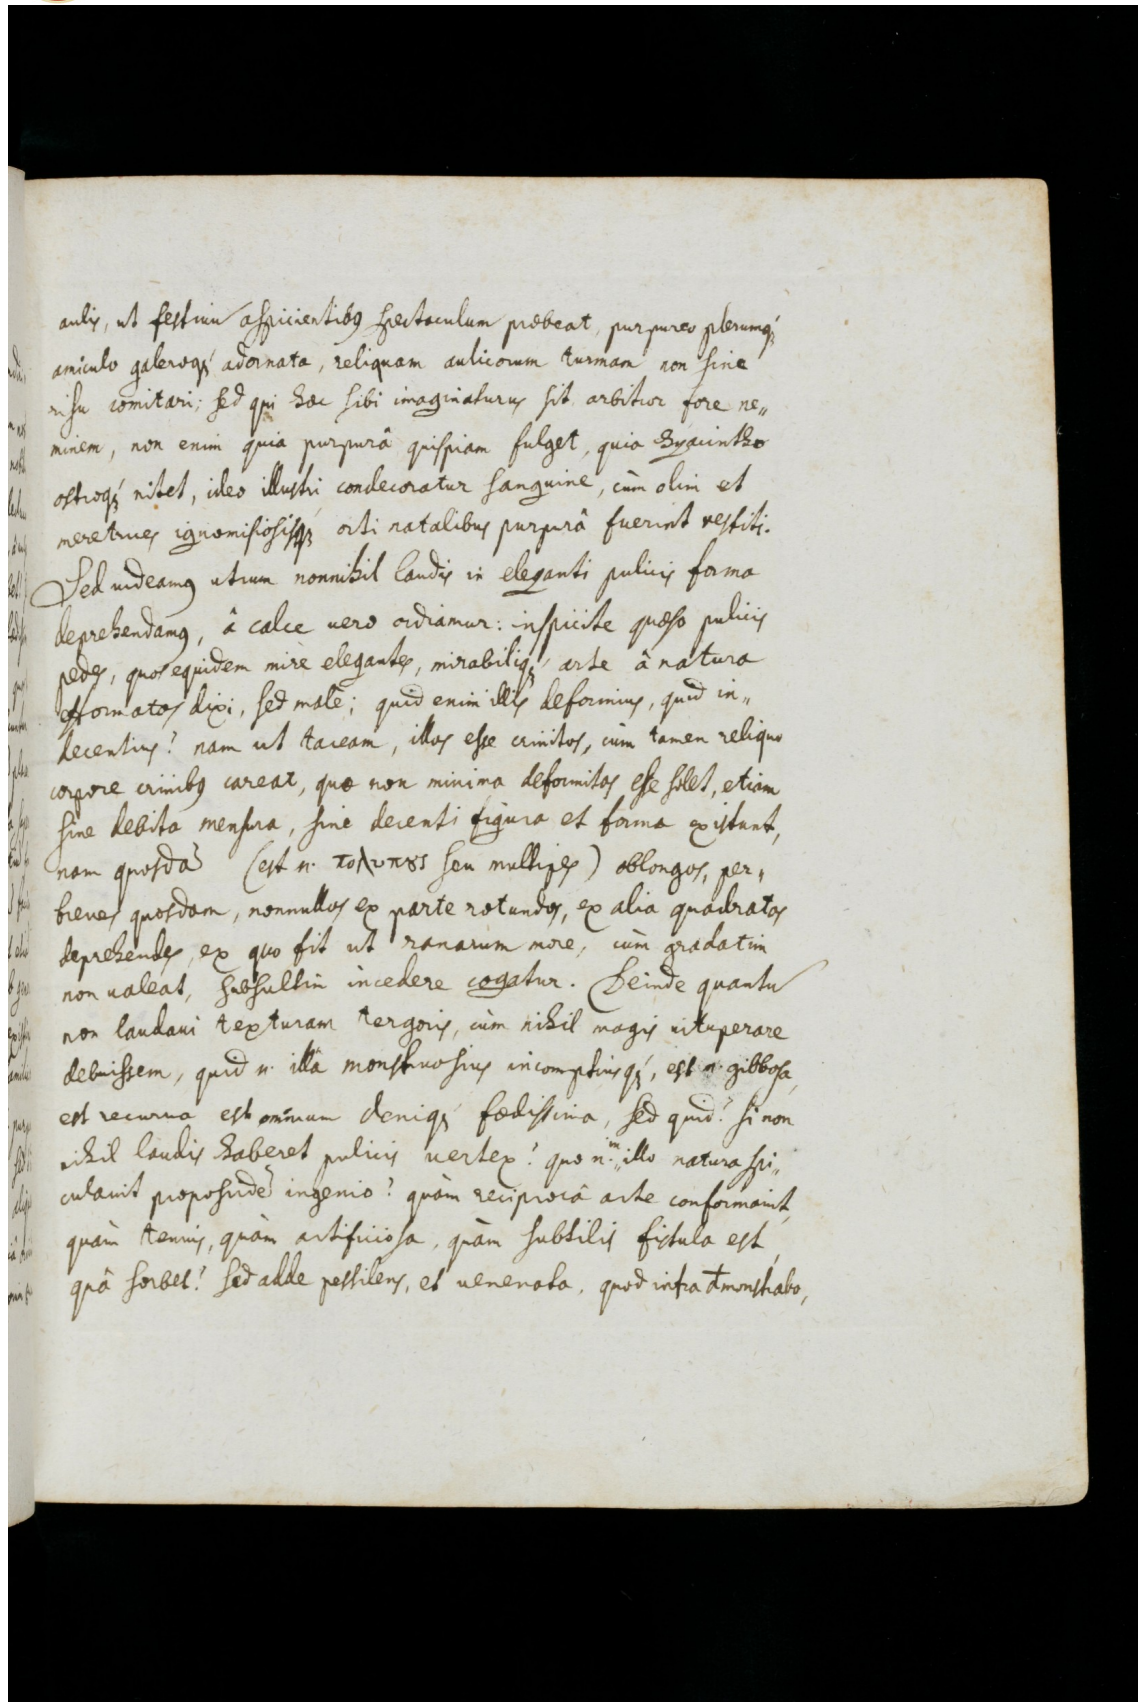 aulis, ut festivū aspicientibꝰ spectaculum præbeat, purpureo plerumqꝫ
amiculo galeroqꝫ adornata, reliquam aulicorum turmam non sine
risu comitari; sed qui hæc sibi imaginaturus sit arbitror fore ne„
minem, non enim quia purpurâ quispiam fulget, quia hyacintho
ostroqꝫ nitet, ideo illustri condecoratur sanguine, cùm olim et
meretrices ignominiosisqꝫ orti natalibus purpurâ fuerint vestiti.
Sed videamꝰ utrum nonnihil laudis in eleganti pulicis forma
deprehendamꝰ, â calce uero ordiamur: inspicite quæso pulicis
pedes, quos equidem mirè elegantes, mirabiliqꝫ arte â natura
efformatos dixi, sed malè; quid enim illis deformius, quid in„
decentius? nam ut taceam, illos esse crinitos, cùm tamen reliquo
corpore crinibꝰ careat, quæ non minima deformitas esse solet, etiam
sine debita mensura, sine decenti figura et forma existunt,
nam quosdā (est n. πολυπȣς seu multipes) oblongos, per„
breues quosdam, nonnullos ex parte rotundos, ex alia quadratos
deprehendes, ex quo fit ut ranarum more, cùm gradatim
non ualeat, subsultim incedere cogatur. Deinde quantū
non laudaui texturam tergoris, cùm nihil magis uituperare
debuissem, quid n. illâ monstruosius incomptiusqꝫ, est n. gibbosa,
est recurua est omnium deniqꝫ fœdissima, sed quid? si non
nihil laudis haberet pulicis uertex? quo n.„ illo natura spi„
culauit proposcidē ingenio? quàm reciprocâ arte conformauit,
quàm tenuis, quàm artificiosa, quàm subtilis fistula est,
quâ sorbet? sed adde pestilens, et uenenata, quod infra dmonstrabo,